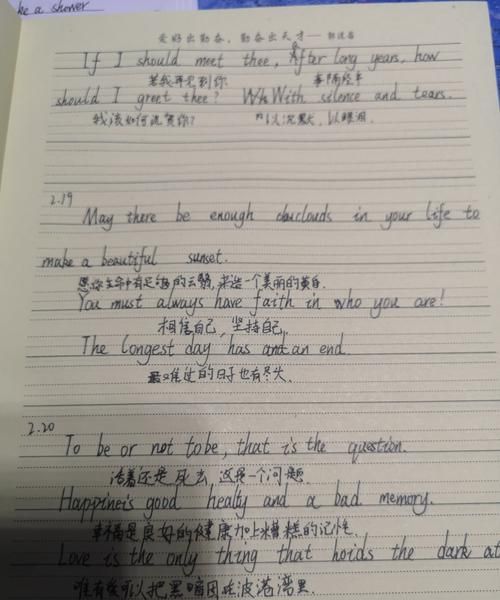 ke a shower
爱好出勤奋，勤奋出天才—郭沫若
If I should meet thee, After long years, how
若我再见到你 事隔经年
should I greet thee? With silence and tears.
我该如何致贺你? 以沉默，以眼泪.
2.19
May there be enough clouds in your life to
make a beautiful sunset.
愿你生命中有足够的云翳,来造一个美丽的黄昏.
You must always have faith in who you are!
相信自己，坚持自己.
The longest day has an end.
最难过的日子也有尽头.
2.20
To be or not to be, that is the question.
活着还是死去，这是一个问题.
Happineis good healty and a bad memory.
幸福是良好的健康加上糟糕的记忆.
Love is the only thing that hoids the dark at
唯有爱可以把黑暗困在波港湾里.